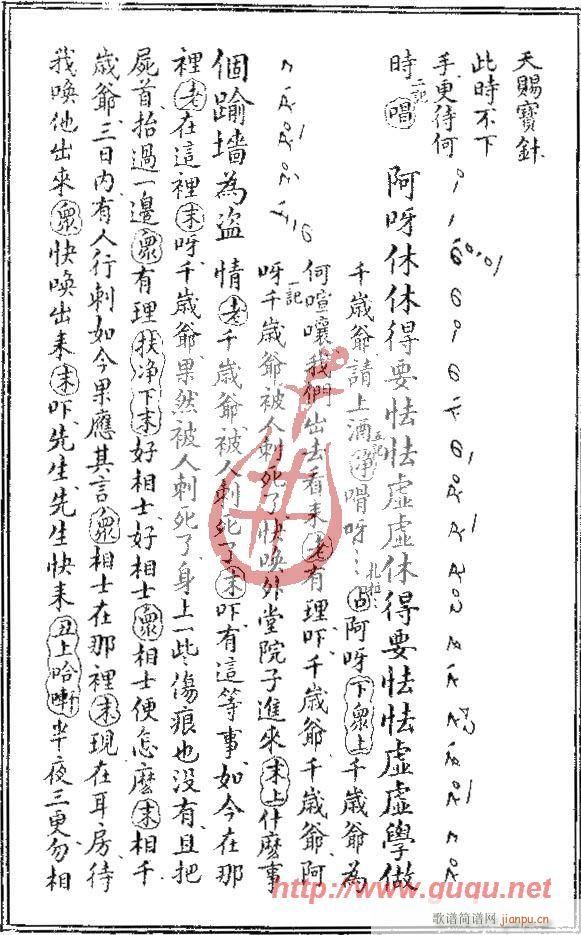 天賜寶針
此時不下
手、更待何
時 二記 唱 阿呀休休得要怯怯虚虚休得要怯怯虚虛學做
千歲爺請上酒 淨 嘓呀⋮ 占 阿呀 下衆上 千歲爺為
何喧嚷我們出去看来 老 有理吓千歲爺千歲爺阿
呀 一記 千歲爺被人刺死了快喚外堂院子進來 末上 什麽事
個踰墻為盜 情 老 千歲爺被人刺死了 末 吓有這等事如今在那
裡 老 在這裡 末 呀千歲爺果然被人刺死了身上一些傷痕也沒有且把
屍首抬過一邊 衆 有理 扶净下末 好相士好相士 衆 相士便怎麽 末 相千
歲爺三日內有人行刺如今果應其言 衆 相士在那裡 末 現在耳房待
我喚他出來 衆 快喚出来 末 吓先生先生快来 丑上 哈 半夜三更勿相
http://www.guqu.net
歌谱简谱网
jianpu.cn